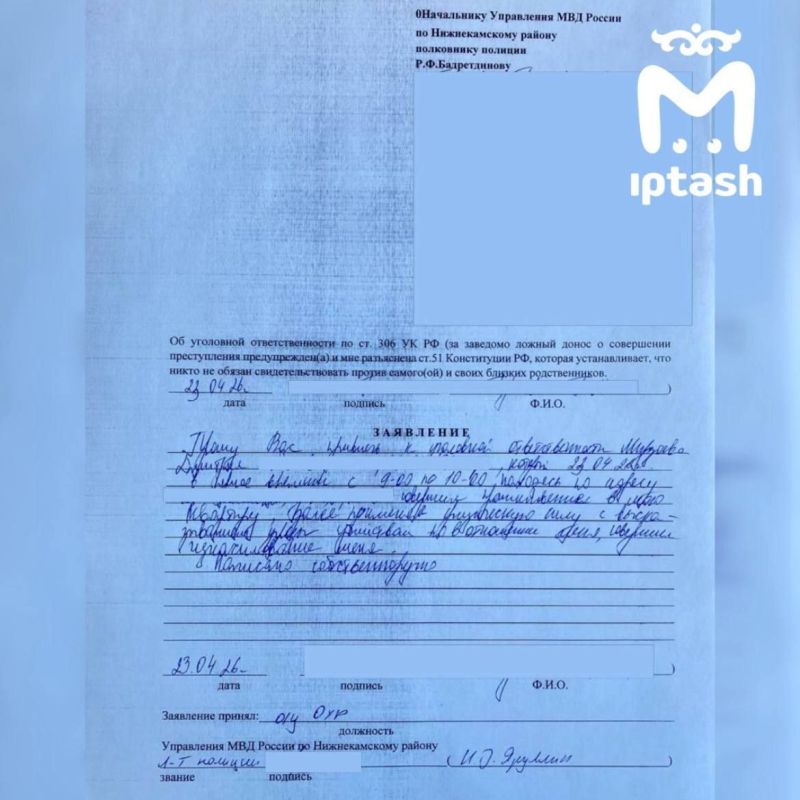 0Начальнику Управления МВД России
по Нижнекамскому району
полковнику полиции
Р.Ф.Бадретдинову
M
ıptash
Об уголовной ответственности по ст. 306 УК РФ (за заведомо ложный донос о совершении
преступления предупрежден(а) и мне разъяснена ст.51 Конституции РФ, которая устанавливает, что
никто не обязан свидетельствовать против самого(ой) и своих близких родственников.
23 04 26г.
дата подпись Ф.И.О.
ЗАЯВЛЕНИЕ
Прошу Вас привлечь к уголовной ответственности
Дмитрия который 23.04.26
в период времени с 9:00 по 10:00, находясь по адресу
совершил в мою
квартиру далее физическую силу с
в отношении меня, совершил
изнасилование меня.
Написано собственноручно
23.04 26г. )
дата подпись Ф.И.О.
Заявление принял:
должность
Управления МВД России по Нижнекамскому району
л-т полиции ( )
звание подпись